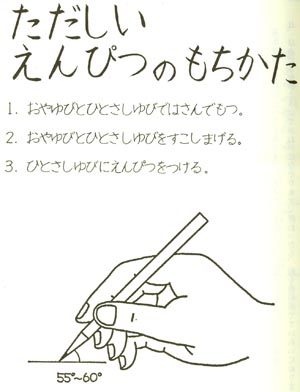 ただしい
えんぴつのもちかた
1. おやゆびとひとさしゆびではさんでもつ。
2. おやゆびとひとさしゆびをすこしまげる。
3. ひとさしゆびにえんぴつをつける。
55°~60°